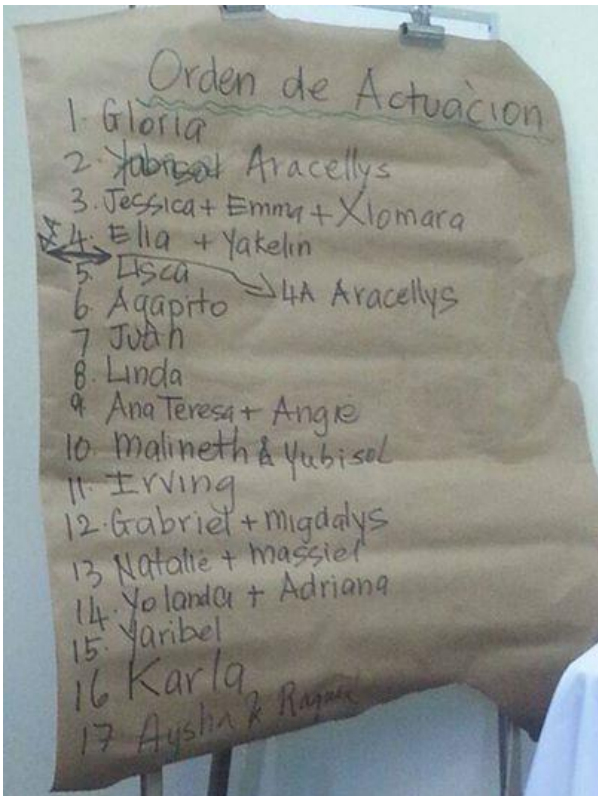 Orden de Actuaciòn
1. Gloria
2. Yabisol Aracellys
3. Jessica + Emma + Xiomara
4. Elia + Yakelin
5 Lisca
4A Aracellys
6 Agapito
7 Juan
8. Linda
9 Ana Teresa + Angie
10 Malineth & Yubisol
11. Irving
12. Gabriel + migdalys
13 Natalie + massiel
14. Yolanda + Adriana
15. Yaribel
16 Karla
17 Aysha &